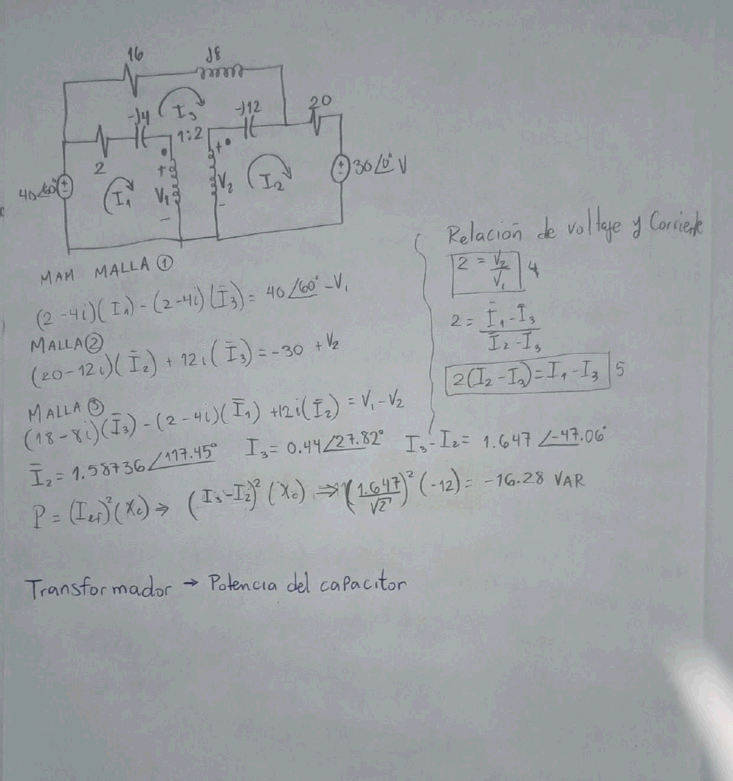 16 J8
-J4 I₃ -J12 20
1:2
2 + +
40∠60° I₁ V₁ V₂ I₂ 30∠0° V
- -
MAH MALLA ①
(2-4i)(I₁)-(2-4i)(I̅₃)= 40∠60° -V₁
MALLA ②
(20-12i)(I̅₂)+12i(I̅₃)=-30 +V₂
MALLA ③
(18-8i)(I̅₃)-(2-4i)(I̅₁)+12i(I̅₂)=V₁-V₂
I̅₂=1.58736∠117.45° I₃=0.44∠27.82° I₃-I₂= 1.647 ∠-47.06°
P=(Ief)²(Xc)⇒ (I₃-I₂)²(Xc) ⇒(1.647/√2)²(-12)= -16.28 VAR
Relación de voltaje y Corriente
2 = V₂/V₁ 4
2= I̅₁-I̅₃/I̅₂-I̅₃
2(I₂-I₃)=I₁-I₃ 5
Transformador → Potencia del capacitor